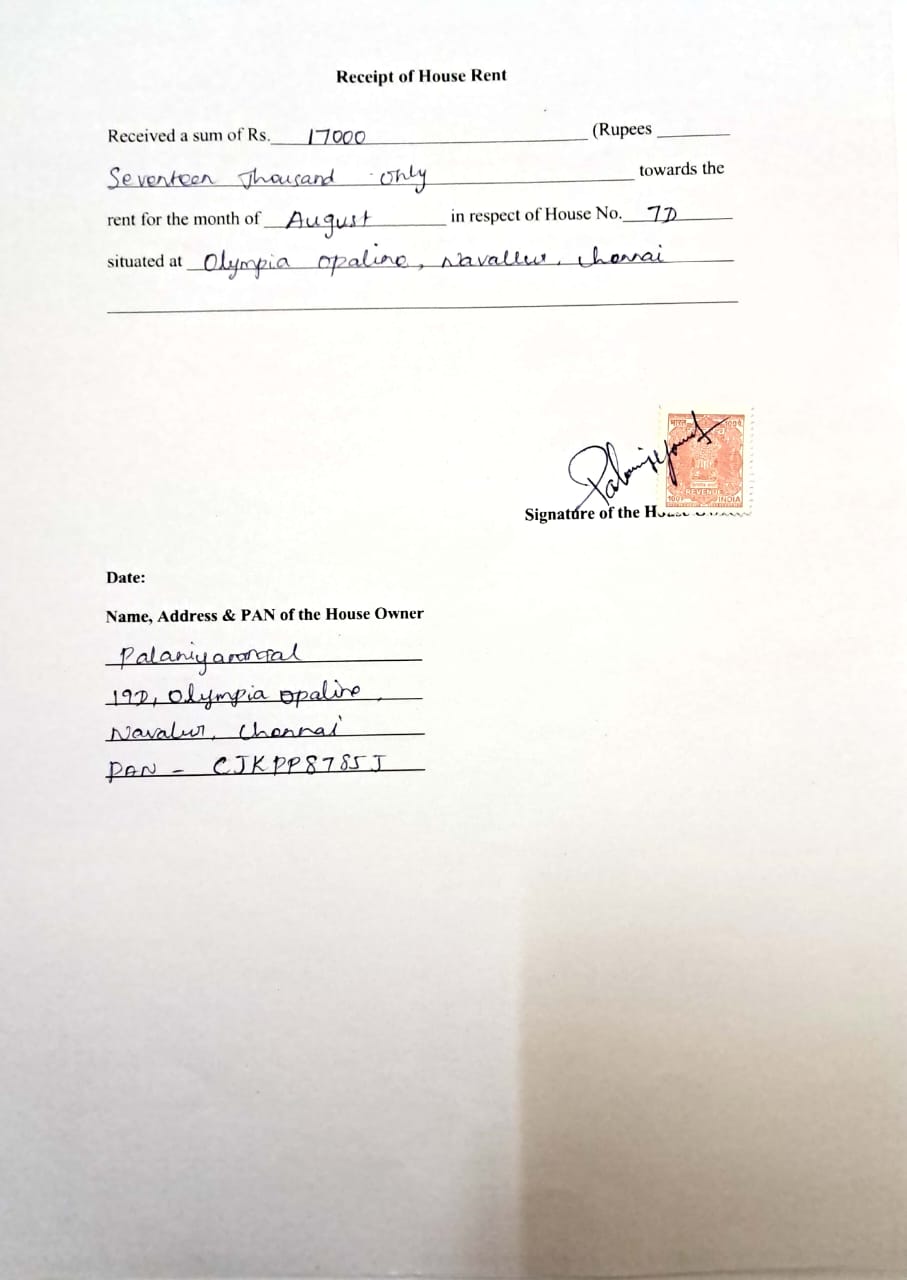 Receipt of House Rent
Received a sum of Rs. 17000 (Rupees
Seventeen Thousand only towards the
rent for the month of August in respect of House No. 7D
situated at Olympia opaline, Navallur, Chennai
REVENUE
INDIA
Signature of the
Date:
Name, Address & PAN of the House Owner
19D, Olympia opaline,
Navalur, Chennai
PAN - CJKPP8785J